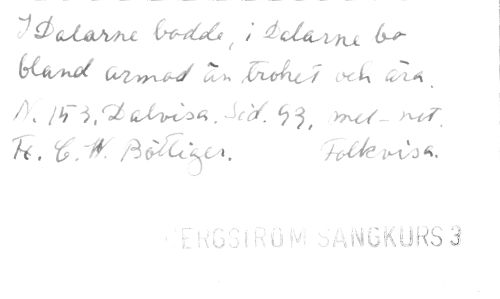 I Dalarne bodde, i Dalarne bo
bland armod än trohet och ära.
N. 153. Dalvisa. Sid. 93, mel-not.
Tx. C. W. Böttiger. Folkvisa.
BERGSTRÖM SÅNGKURS 3